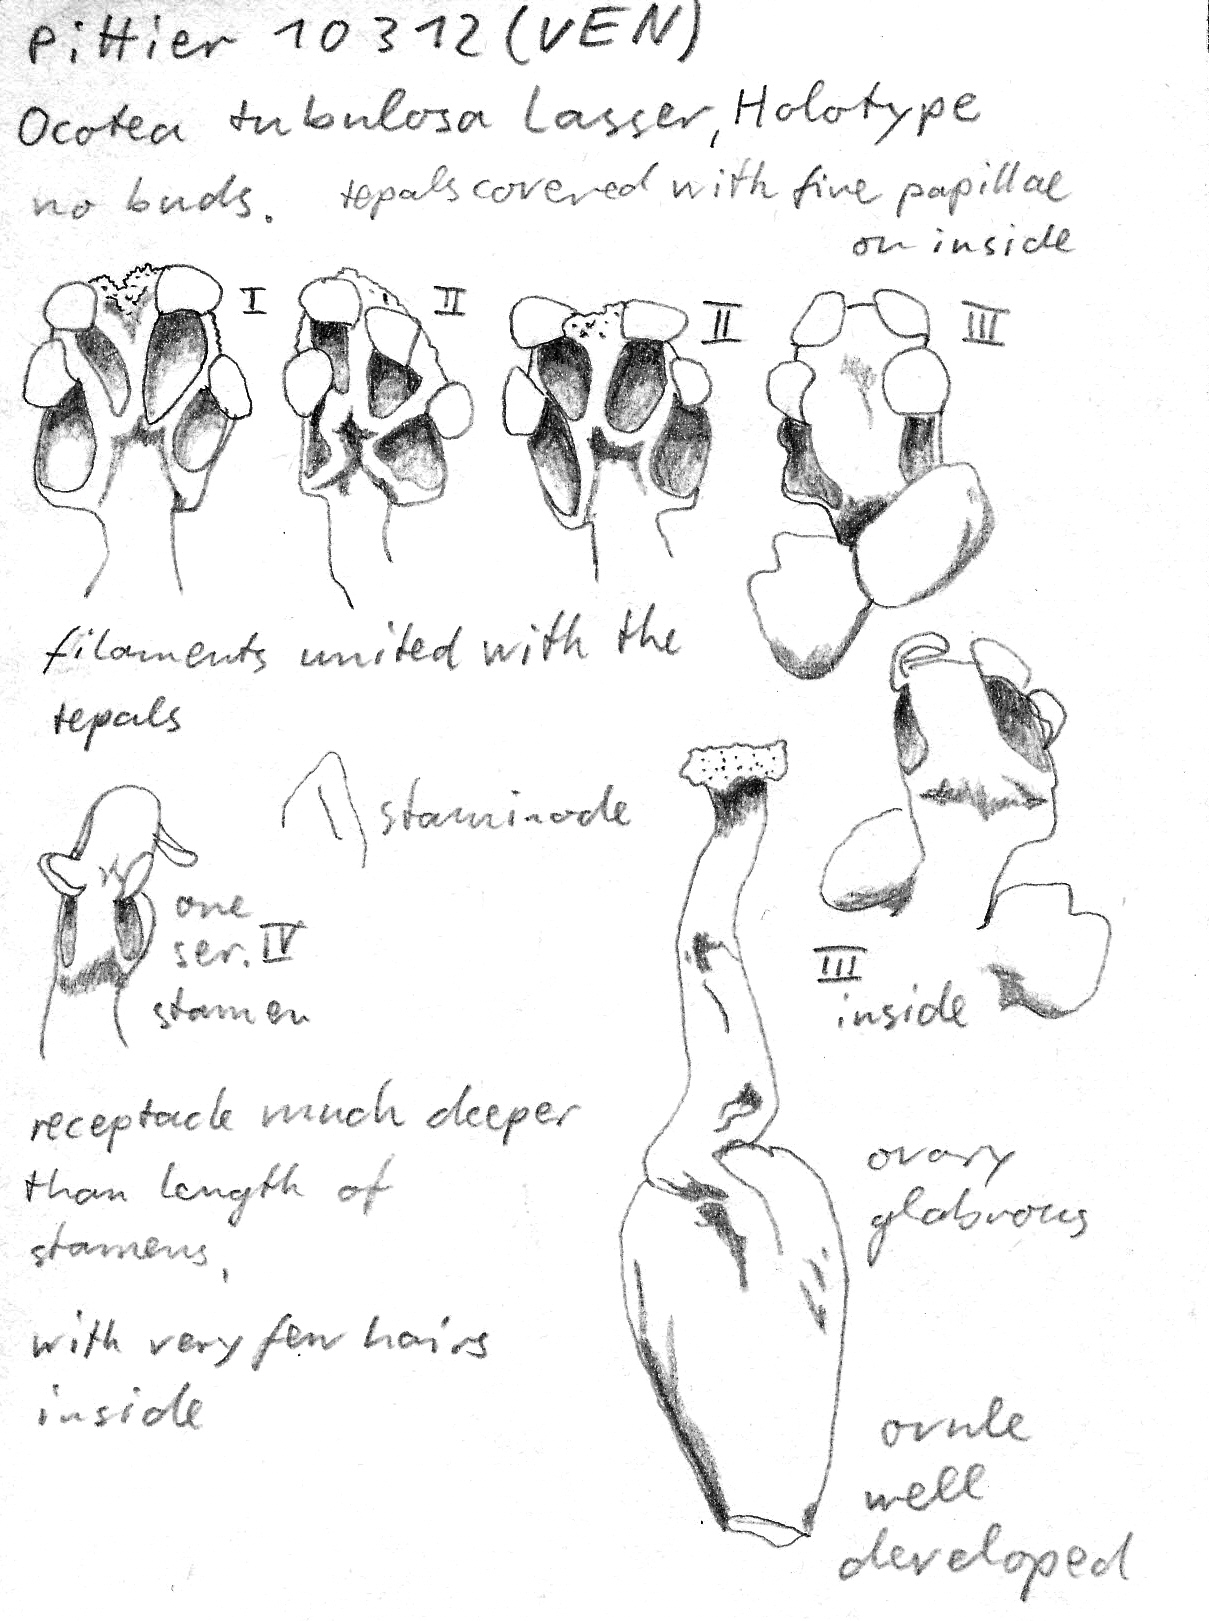 Pittier 10312 (VEN)
Ocotea tubulosa Lasser, Holotype
no buds. tepals covered with fine papillae
on inside
I II II III
filaments united with the
tepals
staminode
one
ser. IV
stamen
III
inside
receptacle much deeper
than length of
stamens,
with very few hairs
inside
ovary
glabrous
ovule
well
developed